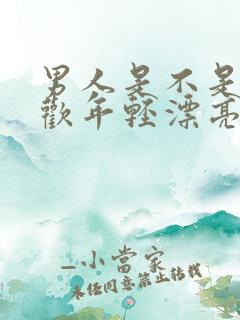 男人是不是
歡年輕漂亮
_小當家
未經同意禁止轉載